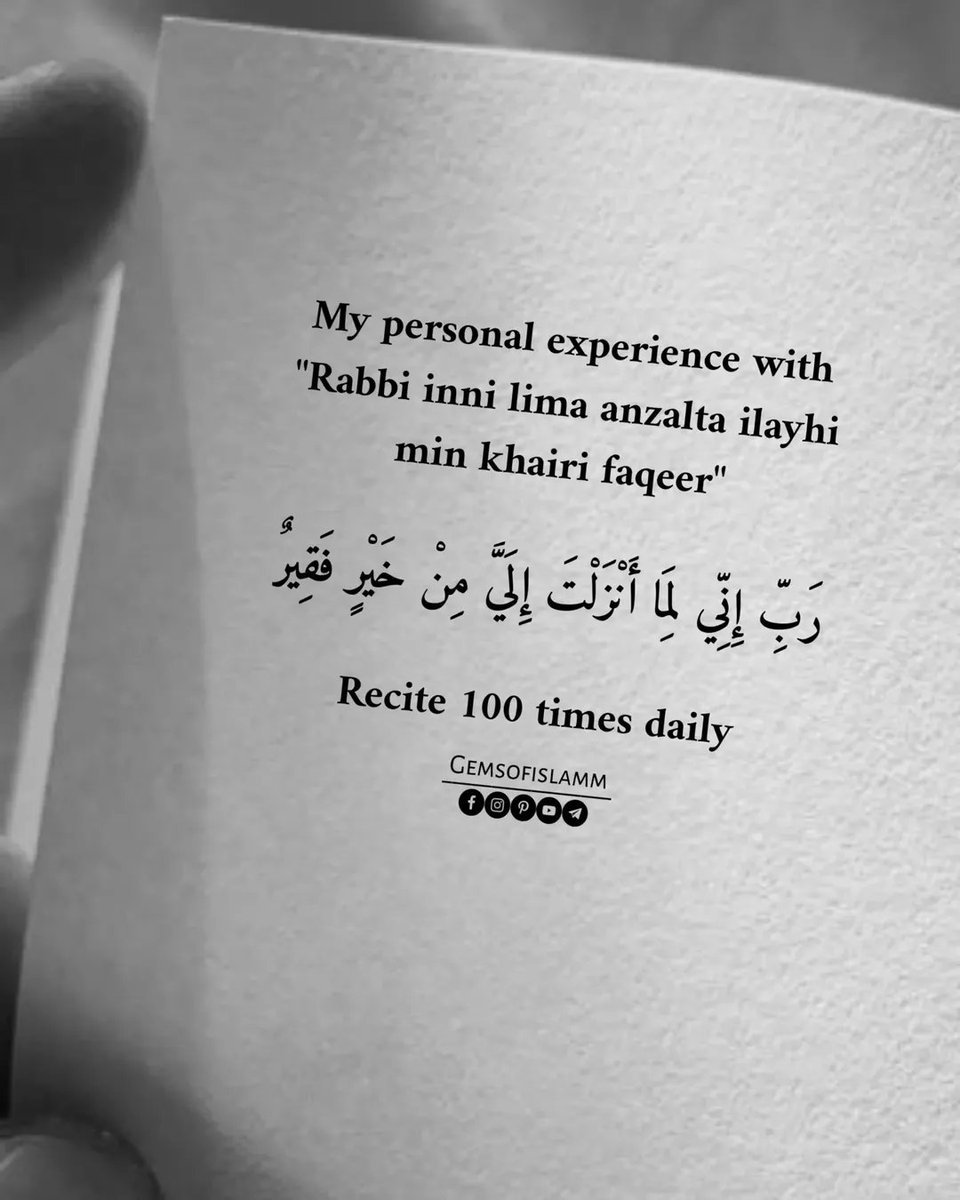 My personal experience with
"Rabbi inni lima anzalta ilayhi
min khairi faqeer"
رَبِّ إِنِّي لِمَا أَنْزَلْتَ إِلَيَّ مِنْ خَيْرٍ فَقِيرٌ
Recite 100 times daily
GEMSOFISLAMM